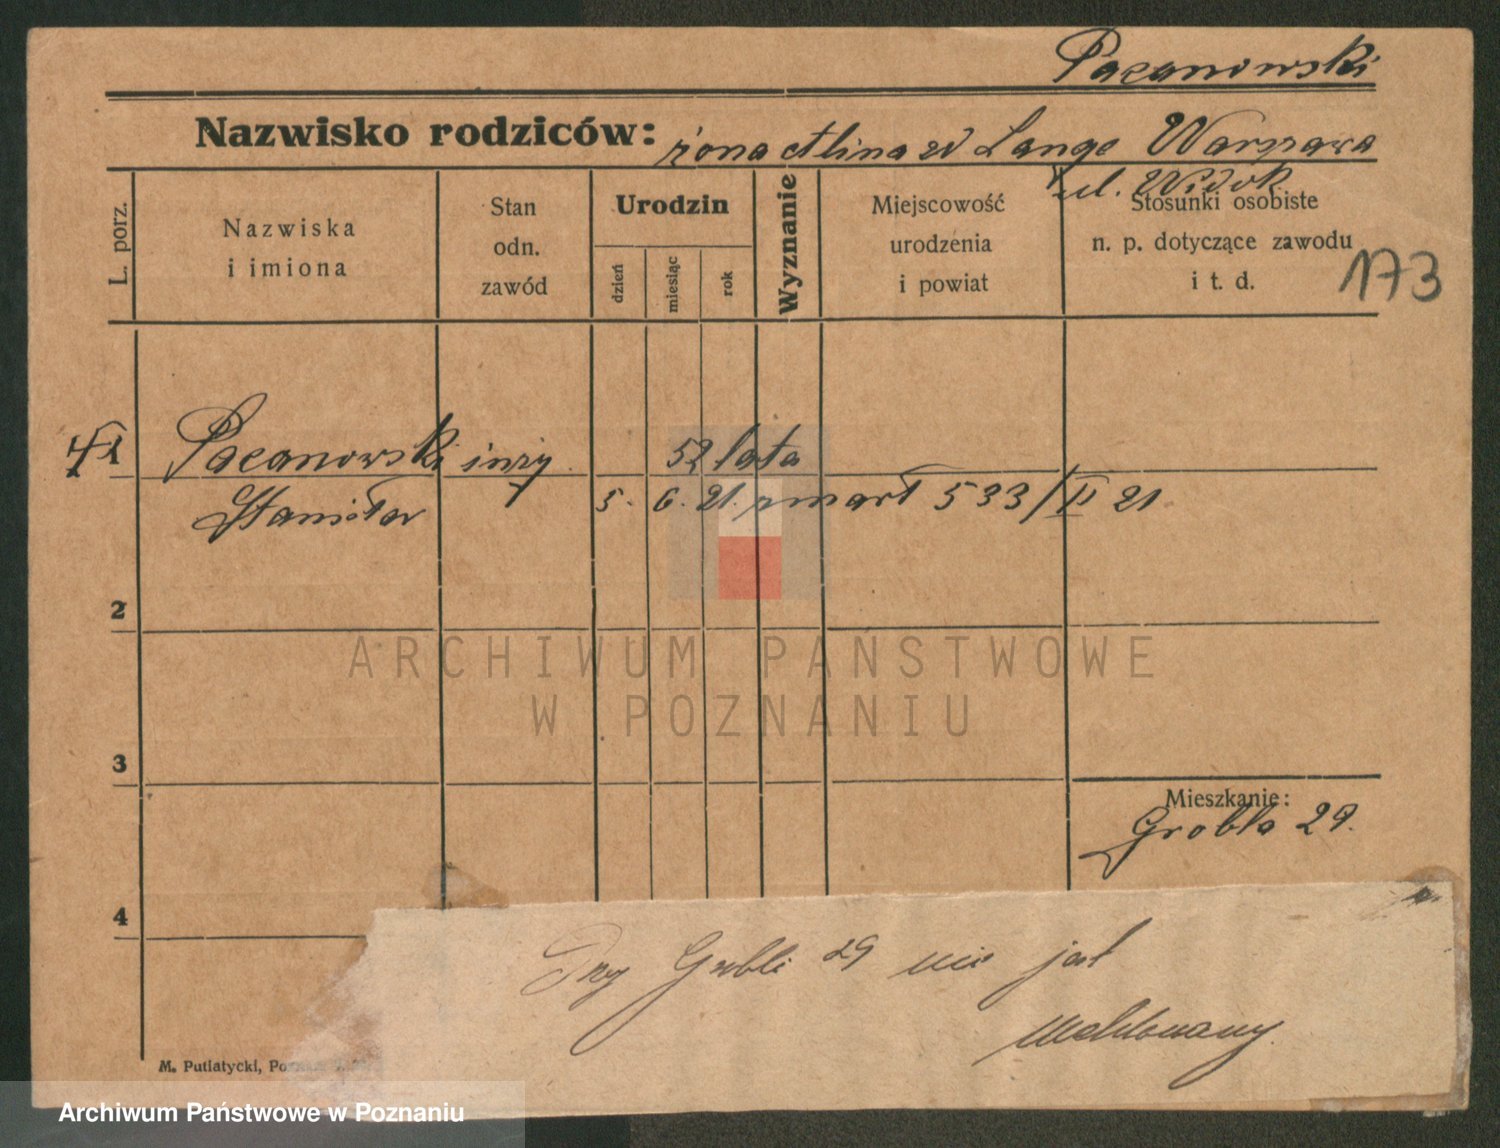 Pacanowski
Nazwisko rodziców: żona Alina zd Lange Warszawa
ul. Widok
L. porz.
Nazwiska
i imiona
Stan
odn.
zawód
Urodzin
dzień
miesiąc
rok
Wyznanie
Miejscowość
urodzenia
i powiat
Stosunki osobiste
n. p. dotyczące zawodu
i t. d.
173
1 Pacanowski inży 52 lata
Stanisław 5. 6. 21. zmarł 533/II 21
2
ARCHIWUM PAŃSTWOWE
W POZNANIU
3
Mieszkanie:
Grobla 29.
4
Przy Grobli 29 nie jest
meldowany.
M. Putiatycki,
Archiwum Państwowe w Poznaniu